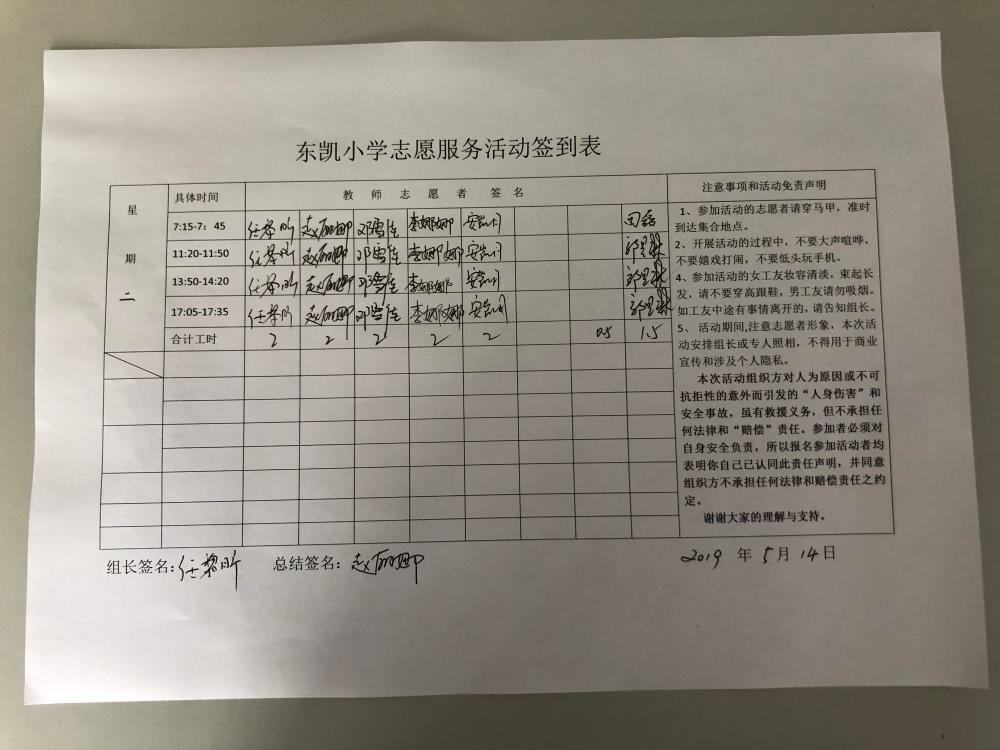 东凯小学志愿服务活动签到表
星期二
具体时间 教师志愿者签名
7:15-7：45 任黎昕 赵丽娜 邓雪莲 李娜娜 安凯月
11:20-11:50 任黎昕 赵丽娜 邓雪莲 李娜娜 安凯月
13:50-14:20 任黎昕 赵丽娜 邓雪莲 李娜娜 安凯月
17:05-17:35 任黎昕 赵丽娜 邓雪莲 李娜娜 安凯月
合计工时 2 2 2 2 2 0.5 1.5
注意事项和活动免责声明
1、参加活动的志愿者请穿马甲，准时
到达集合地点。
2、开展活动的过程中，不要大声喧哗，
不要嬉戏打闹，不要低头玩手机。
4、参加活动的女工友妆容清淡，束起长
发，请不要穿高跟鞋，男工友请勿吸烟。
如工友中途有事情离开的，请告知组长。
5、 活动期间,注意志愿者形象，本次活
动安排组长或专人照相，不得用于商业
宣传和涉及个人隐私。
本次活动组织方对人为原因或不可
抗拒性的意外而引发的“人身伤害”和
安全事故，虽有救援义务，但不承担任
何法律和“赔偿”责任。参加者必须对
自身安全负责，所以报名参加活动者均
表明你自己已认同此责任声明，并同意
组织方不承担任何法律和赔偿责任之约
定。
谢谢大家的理解与支持。
组长签名:任黎昕 总结签名：赵丽娜 2019 年 5月 14日